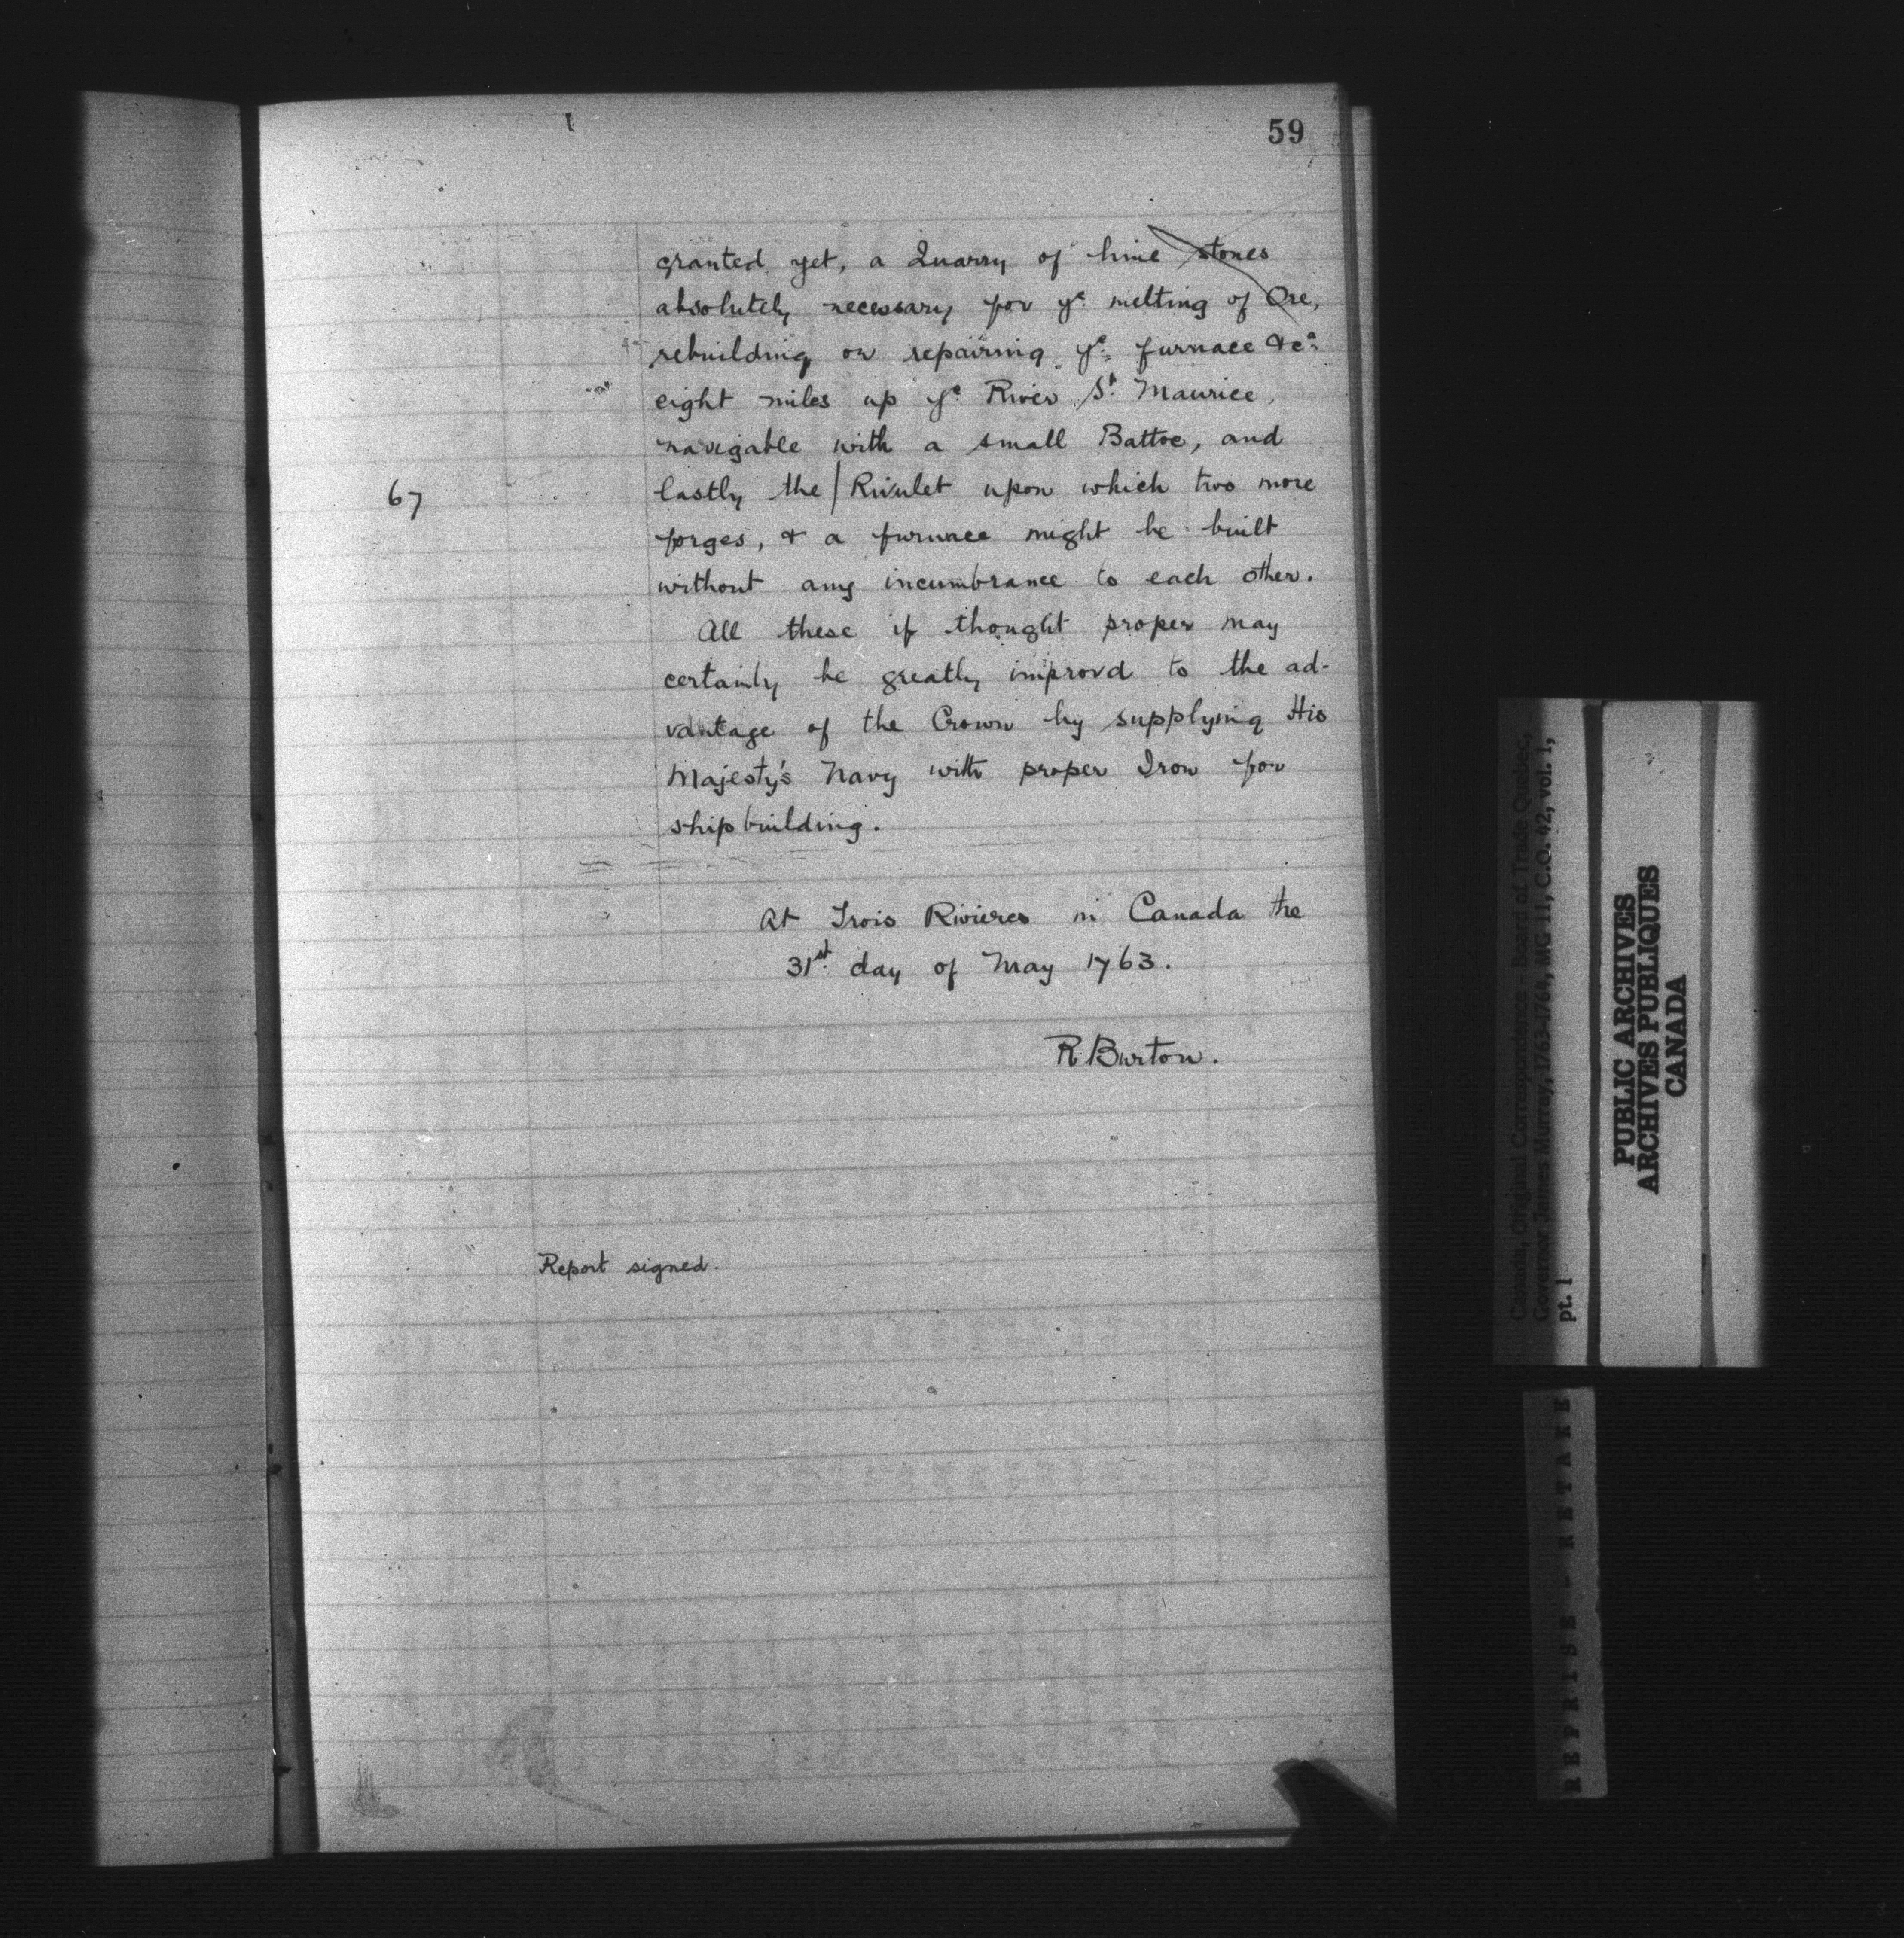 59
granted yet, a Quarry of lime stones
absolutely necessary for yᵉ melting of Ore,
rebuilding or repairing yᵉ furnace &cᵃ
eight miles up yᵉ River Sᵗ Maurice,
navigable with a small Battoe, and
67
lastly the / Rivulet upon which two more
forges, & a furnace might be built
without any incumbrance to each other.
All these if thought proper may
certainly be greatly improvd to the ad-
vantage of the Crown by supplying His
Majesty's Navy with proper Iron for
shipbuilding.
At Trois Rivieres in Canada the
31ˢᵗ day of May 1763.
R. Burton.
Report signed.
Canada, Original Correspondence - Board of Trade Quebec,
Governor James Murray, 1763-1764, MG 11, C.O. 42, vol. 1,
pt. 1
PUBLIC ARCHIVES
ARCHIVES PUBLIQUES
CANADA
REPRISE - RETAKE